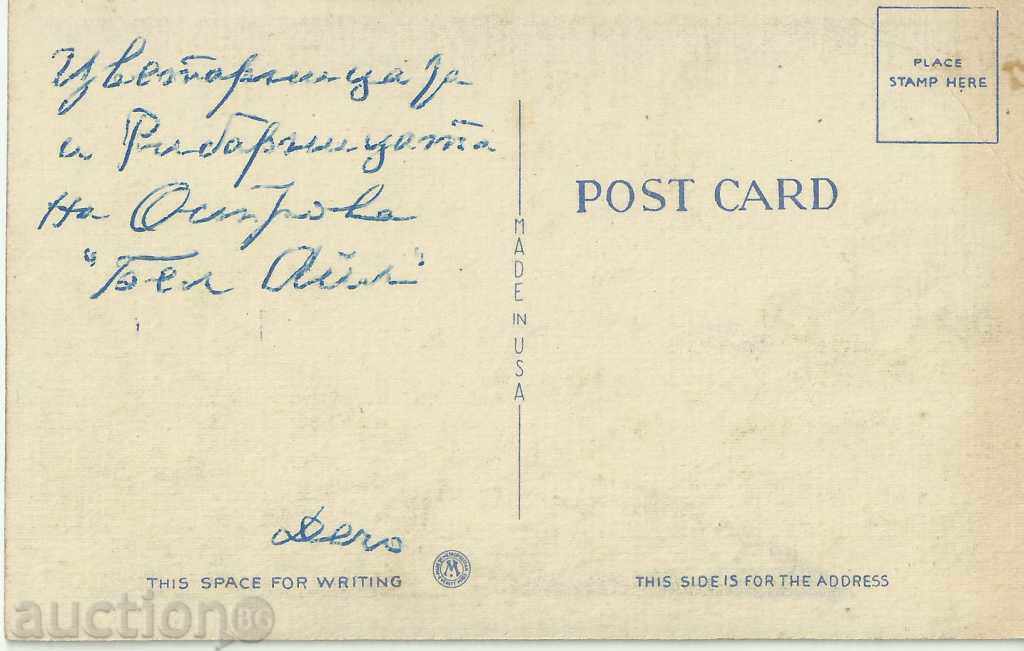 Цветарницата
и Рибарницата
на Острова
"Бел Айл"
Дего
PLACE
STAMP HERE
POST CARD
MADE IN USA
THIS SPACE FOR WRITING
THIS SIDE IS FOR THE ADDRESS
auction BG